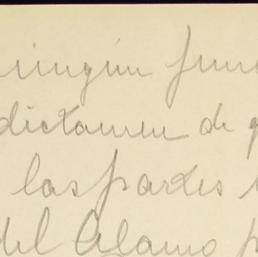 ningún fun
dictamen de
las partes
del Alamo p